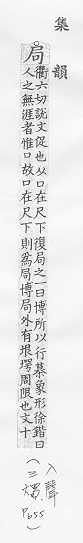 集韻
局
衢六切說文促也从口在尺下復局之一曰博所以行棊象形徐鍇曰
人之無涯者惟口故口在尺下則為局博局外有垠堮周限也文十
(入聲
三燭
P655)